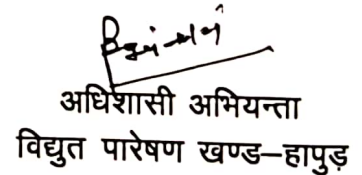 अधिशासी अभियन्ता
विद्युत पारेषण खण्ड–हापुड़